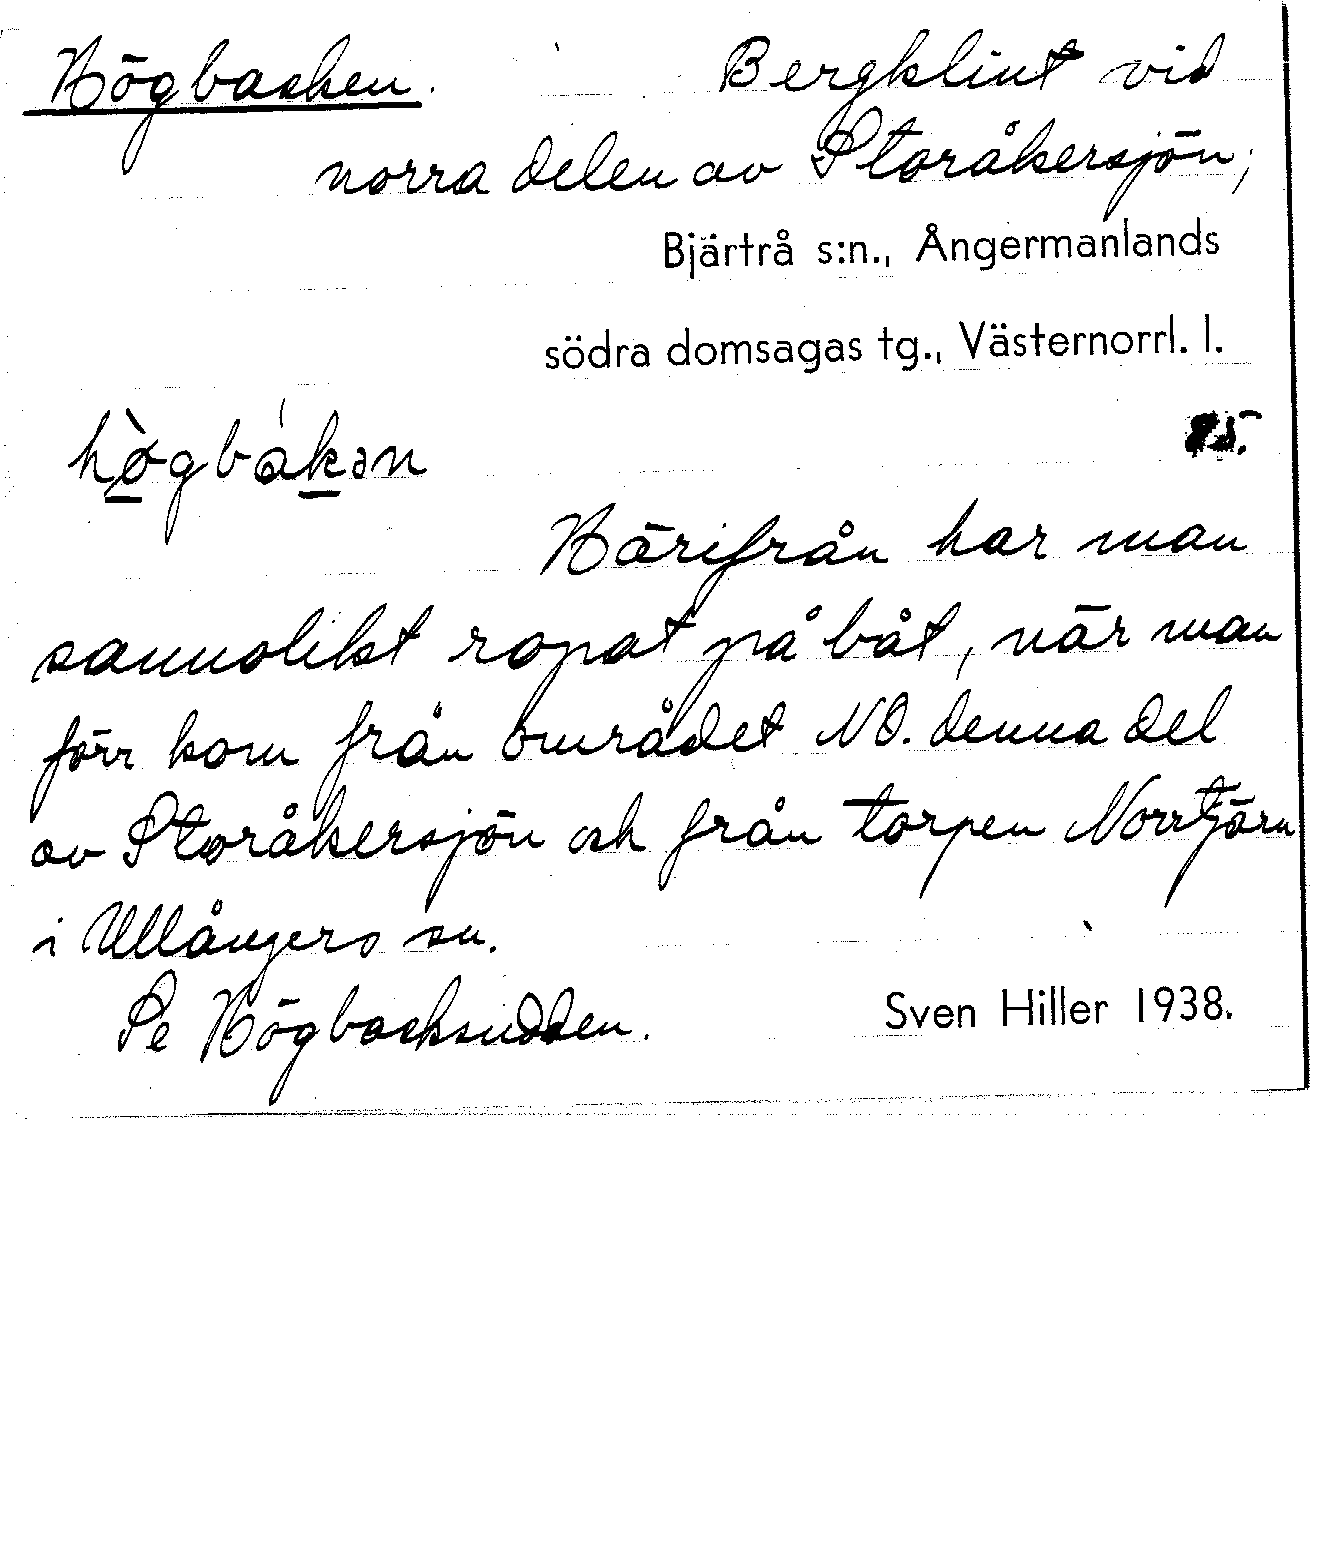 Högbacken. Bergklint vid
norra delen av Storåkersjön,
Bjärtrå s:n., Ångermanlands
södra domsagas tg., Västernorrl. l.
hògbákən 85.
Härifrån har man
sannolikt ropat på båt, när man
förr kom från området NO. denna del
av Storåkersjön och från torpen Norrtjärn
i Ullångers sn.
Se Högbacksudden. Sven Hiller 1938.